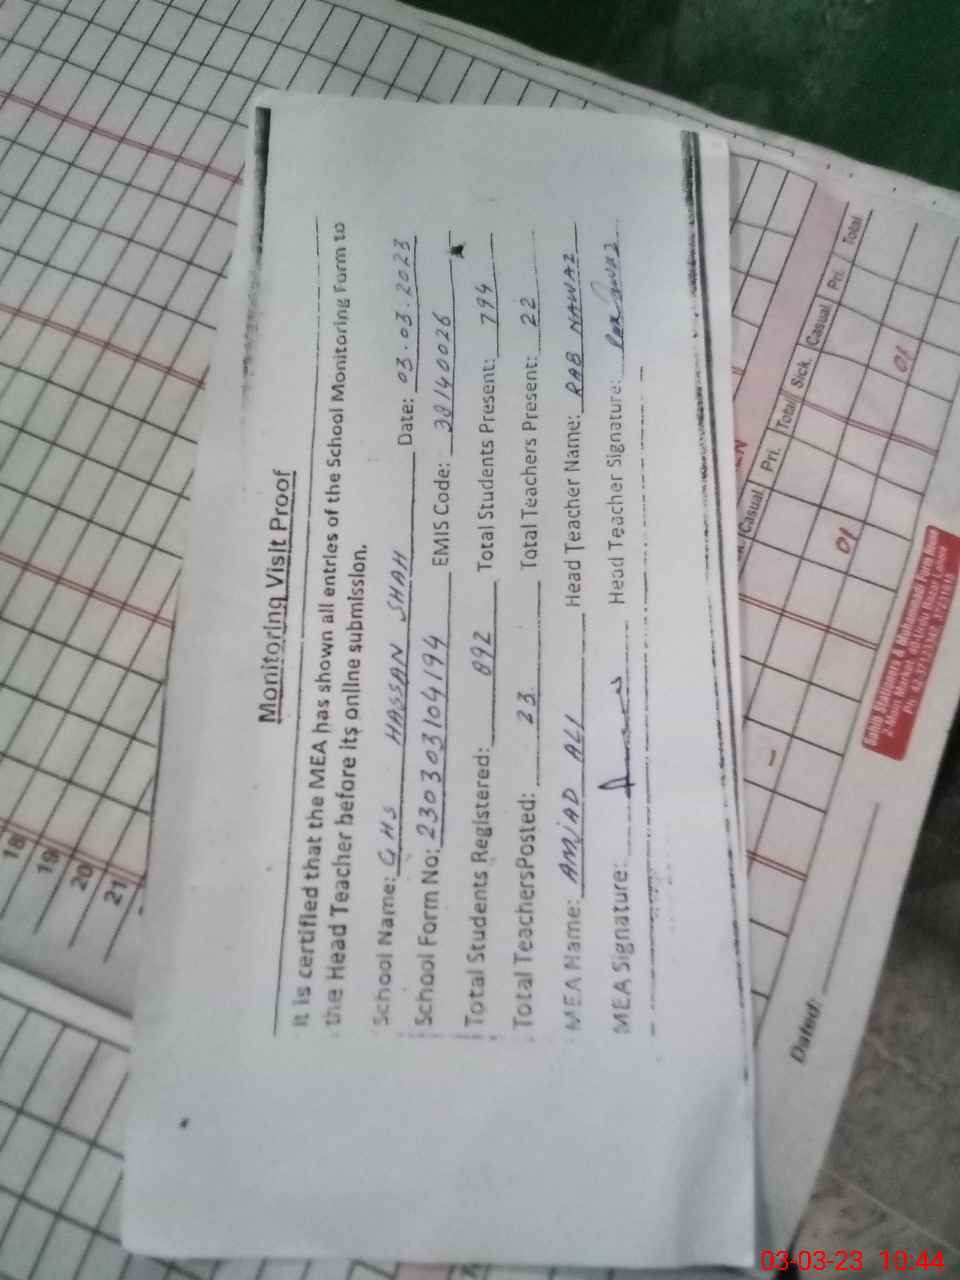 Monitoring Visit Proof
It is certified that the MEA has shown all entries of the School Monitoring Form to
the Head Teacher before its online submission.
School Name: GHS HASSAN SHAH Date: 03.03.2023
School Form No: 230303104194 EMIS Code: 38140026
Total Students Registered: 892 Total Students Present: 794
Total Teachers Posted: 23 Total Teachers Present: 22
MEA Name: AMJAD ALI Head Teacher Name: RAB NAWAZ
MEA Signature: Head Teacher Signature:
18
19
20
21
Casual Pri. Total Sick. Casual Pri. Total
01
01
Dated:
2-Main Market
03-03-23 10:44